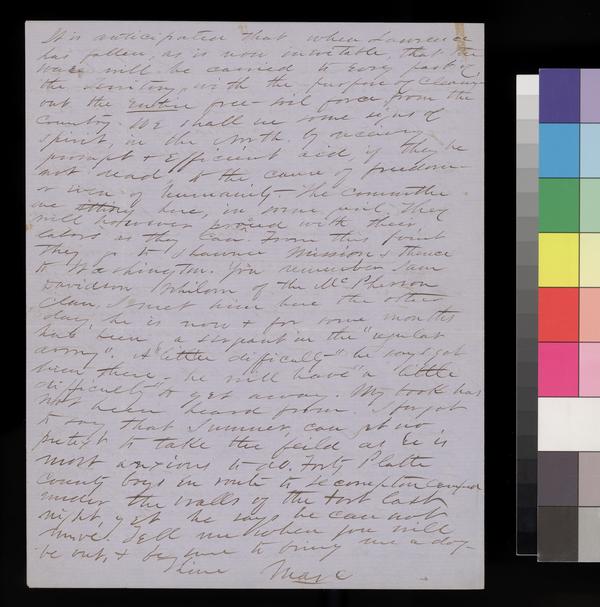 It is anticipated that when Lawrence
has fallen, as is now inevitable, that the
war will be carried to every part of
the territory, with the purpose of cleaning
out the entire free-soil force from the
country. We shall see some signs of
spirit, in the North, by receiving
prompt & efficient aid, if they be
not dead to the cause of freedom
or even of humanity— The committee
are sitting here, in some peril, they
will however proceed with their
labors as they can. From this point
they go to Shawnee Mission & thence
to Washington. You remember Sam
Davidson whilom of the McPherson
Clan. I met him here the other
day, he is now & for some months
has been a sergeant in the "regular
army". A "little difficulty" he says got
him there— he will have "a little
difficulty" to get away. My book has
not been heard from. I forgot
to say that Sumner, can get no
pretext to take the feild as he is
most anxious to do. Forty Platte
County boys en route to Lecompton camped
under the walls of the Fort last
night, yet he says he can not
move. Tell me when you will
be out, & be sure to bring me a dog—
Thine Marc